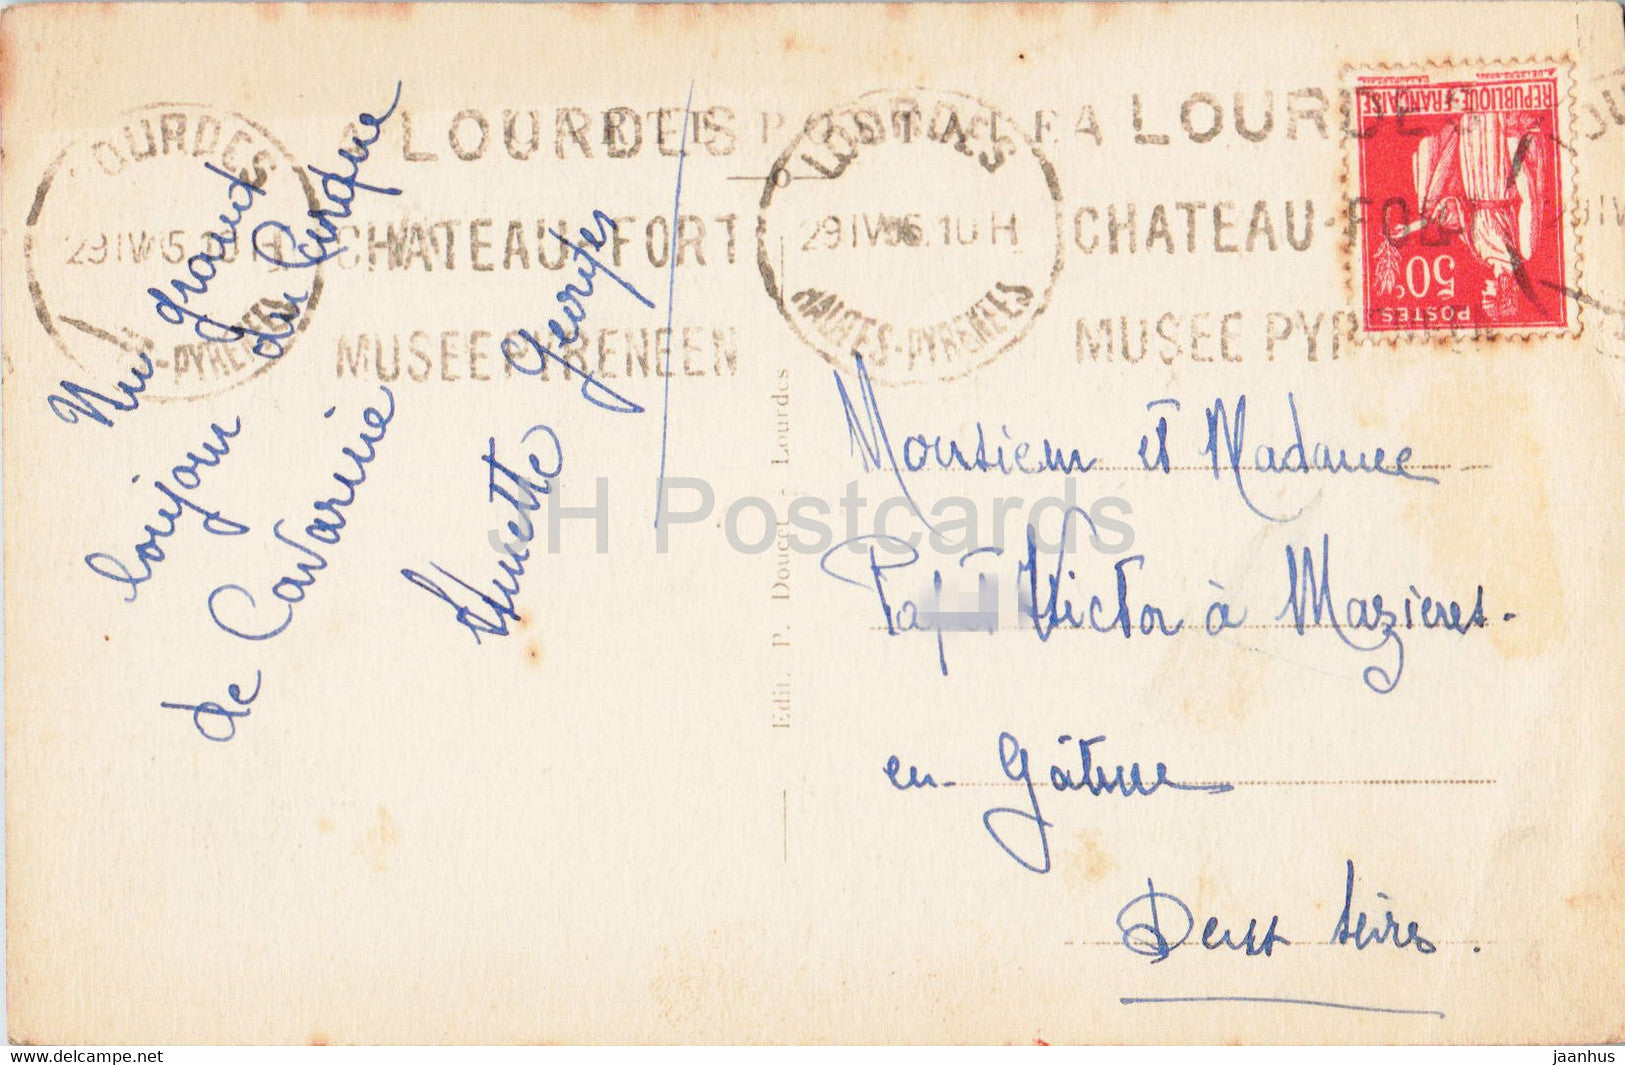 CARTE POSTALE
LOURDES
29 IV 10 H
HAUTES-PYRENEES
LOURDES
CHATEAU-FORT
MUSEE PYRENEEN
LOURDES
29 IV 36 10 H
HAUTES-PYRENEES
LOURDES
CHATEAU-FORT
MUSEE PYRENEEN
REPUBLIQUE-FRANÇAISE
50c
POSTES
Un grand
bonjour du Cirque
de Gavarnie
Ginette Georges
Edit. P. Doucet - Lourdes
Monsieur et Madame
Victor à Mazières-
en-Gâtine
Deux Sèvres.
JH Postcards
https://www.delcampe.net
jaanhus